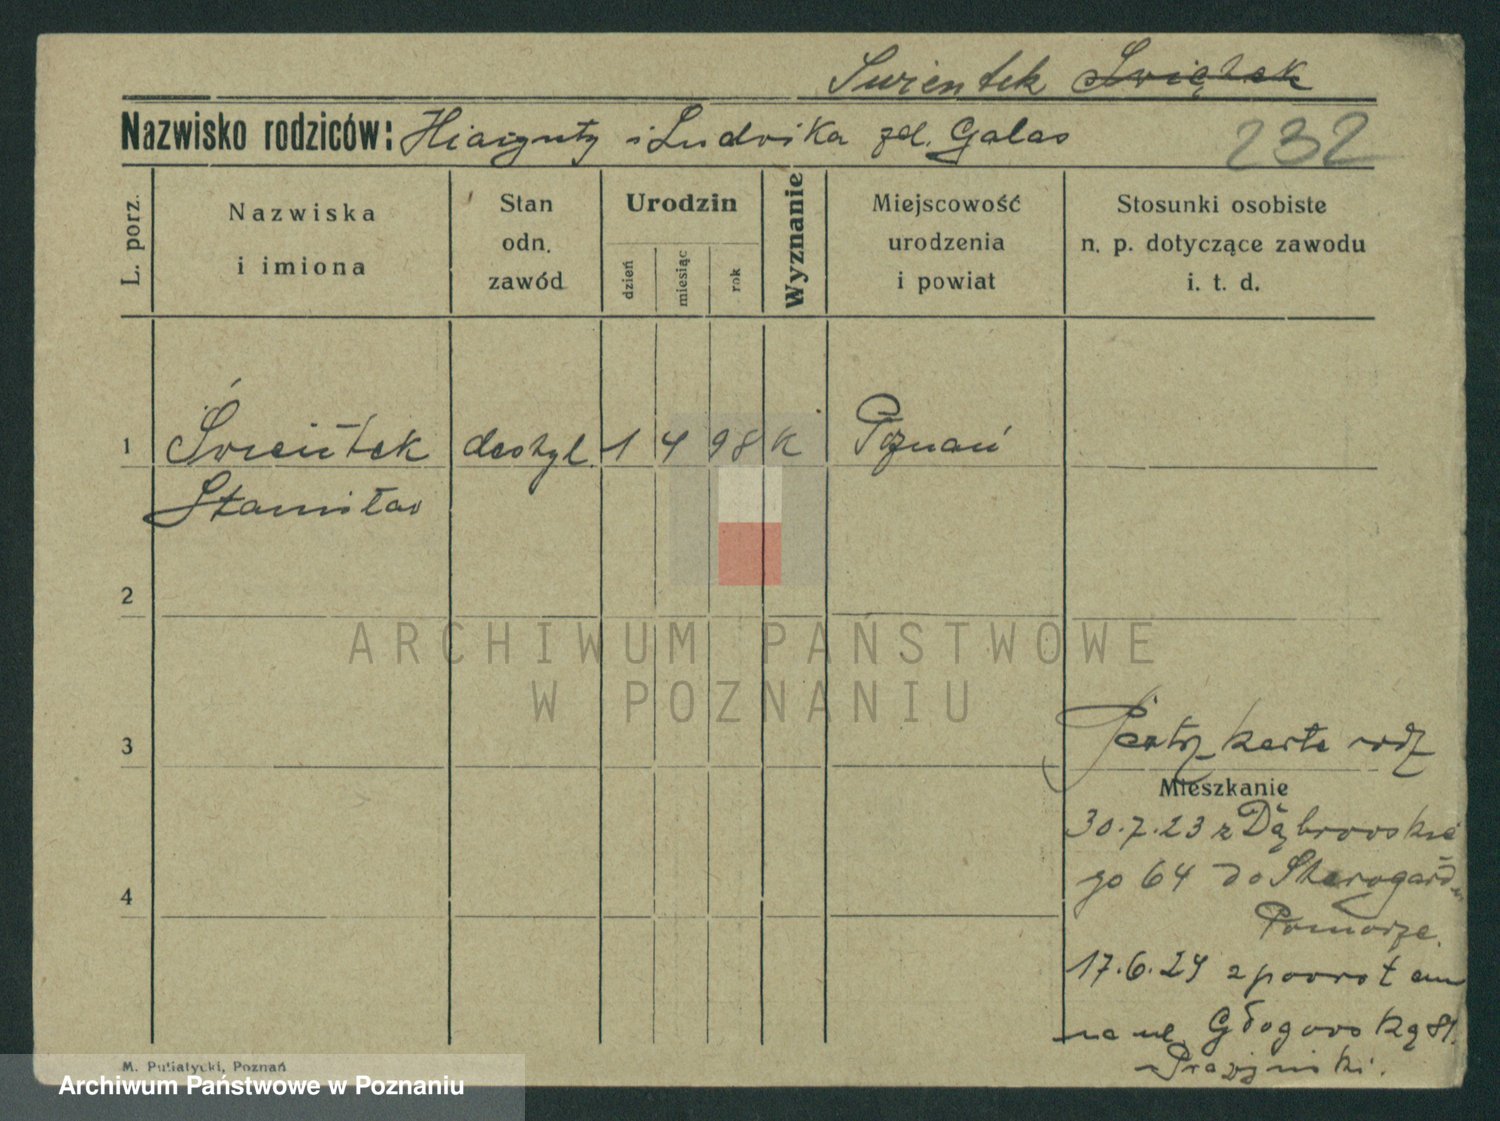 Swientek Świątek
Nazwisko rodziców: Hiacynty i Ludwika zd. Galas
232
L. porz.
Nazwiska i imiona
Stan odn. zawód
Urodzin
dzień
miesiąc
rok
Wyznanie
Miejscowość urodzenia i powiat
Stosunki osobiste n. p. dotyczące zawodu i. t. d.
1 Świeńtek destyl. 1 4 98 k Poznań
Stanisław
2
3
4
ARCHIWUM PAŃSTWOWE
W POZNANIU
Patrz karta rodz
Mieszkanie
30.7.23 z Dąbrowskie
go 64 do Starogard
Pomorze.
17.6.24 z powrotem
na ul. Głogowską 81.
M. Putiatycki, Poznań
Archiwum Państwowe w Poznaniu